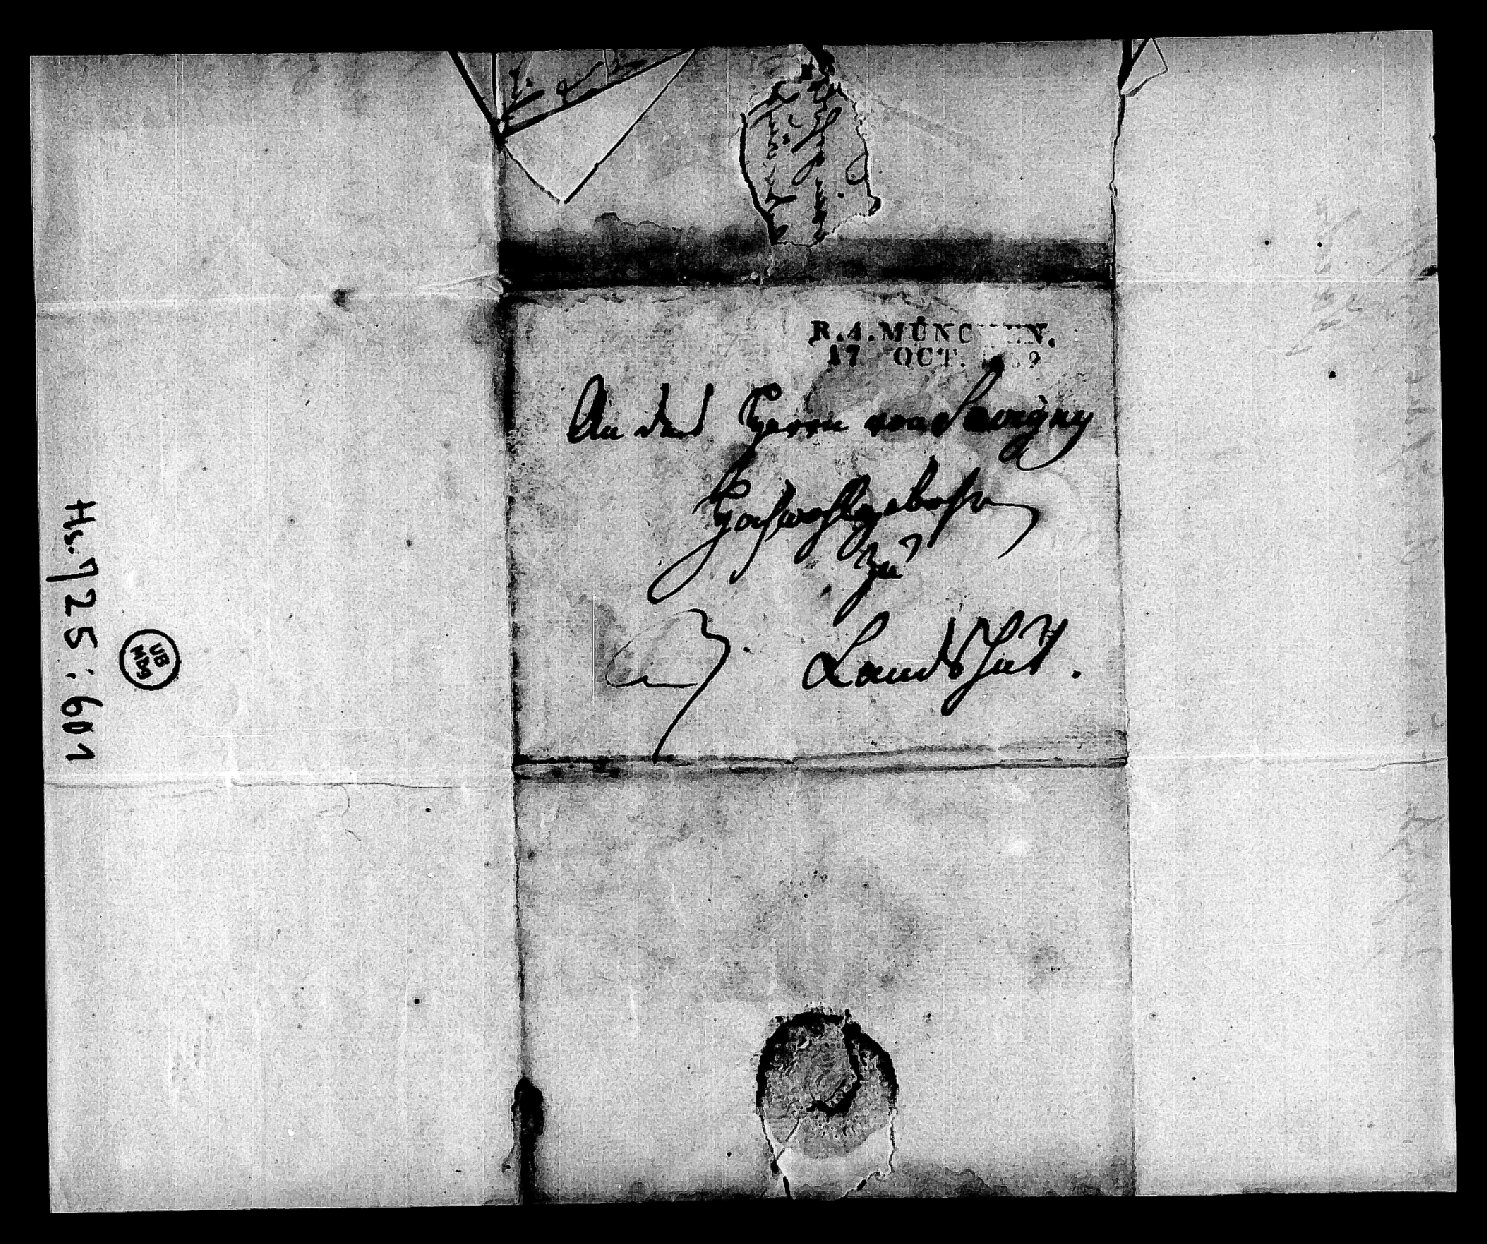 R.4.MÜNCHEN.
17 OCT.
An den Herrn von Savigny
Hochwohlgebohrn
zu
Landshut.
Hs. 725:601
UB
Mbg